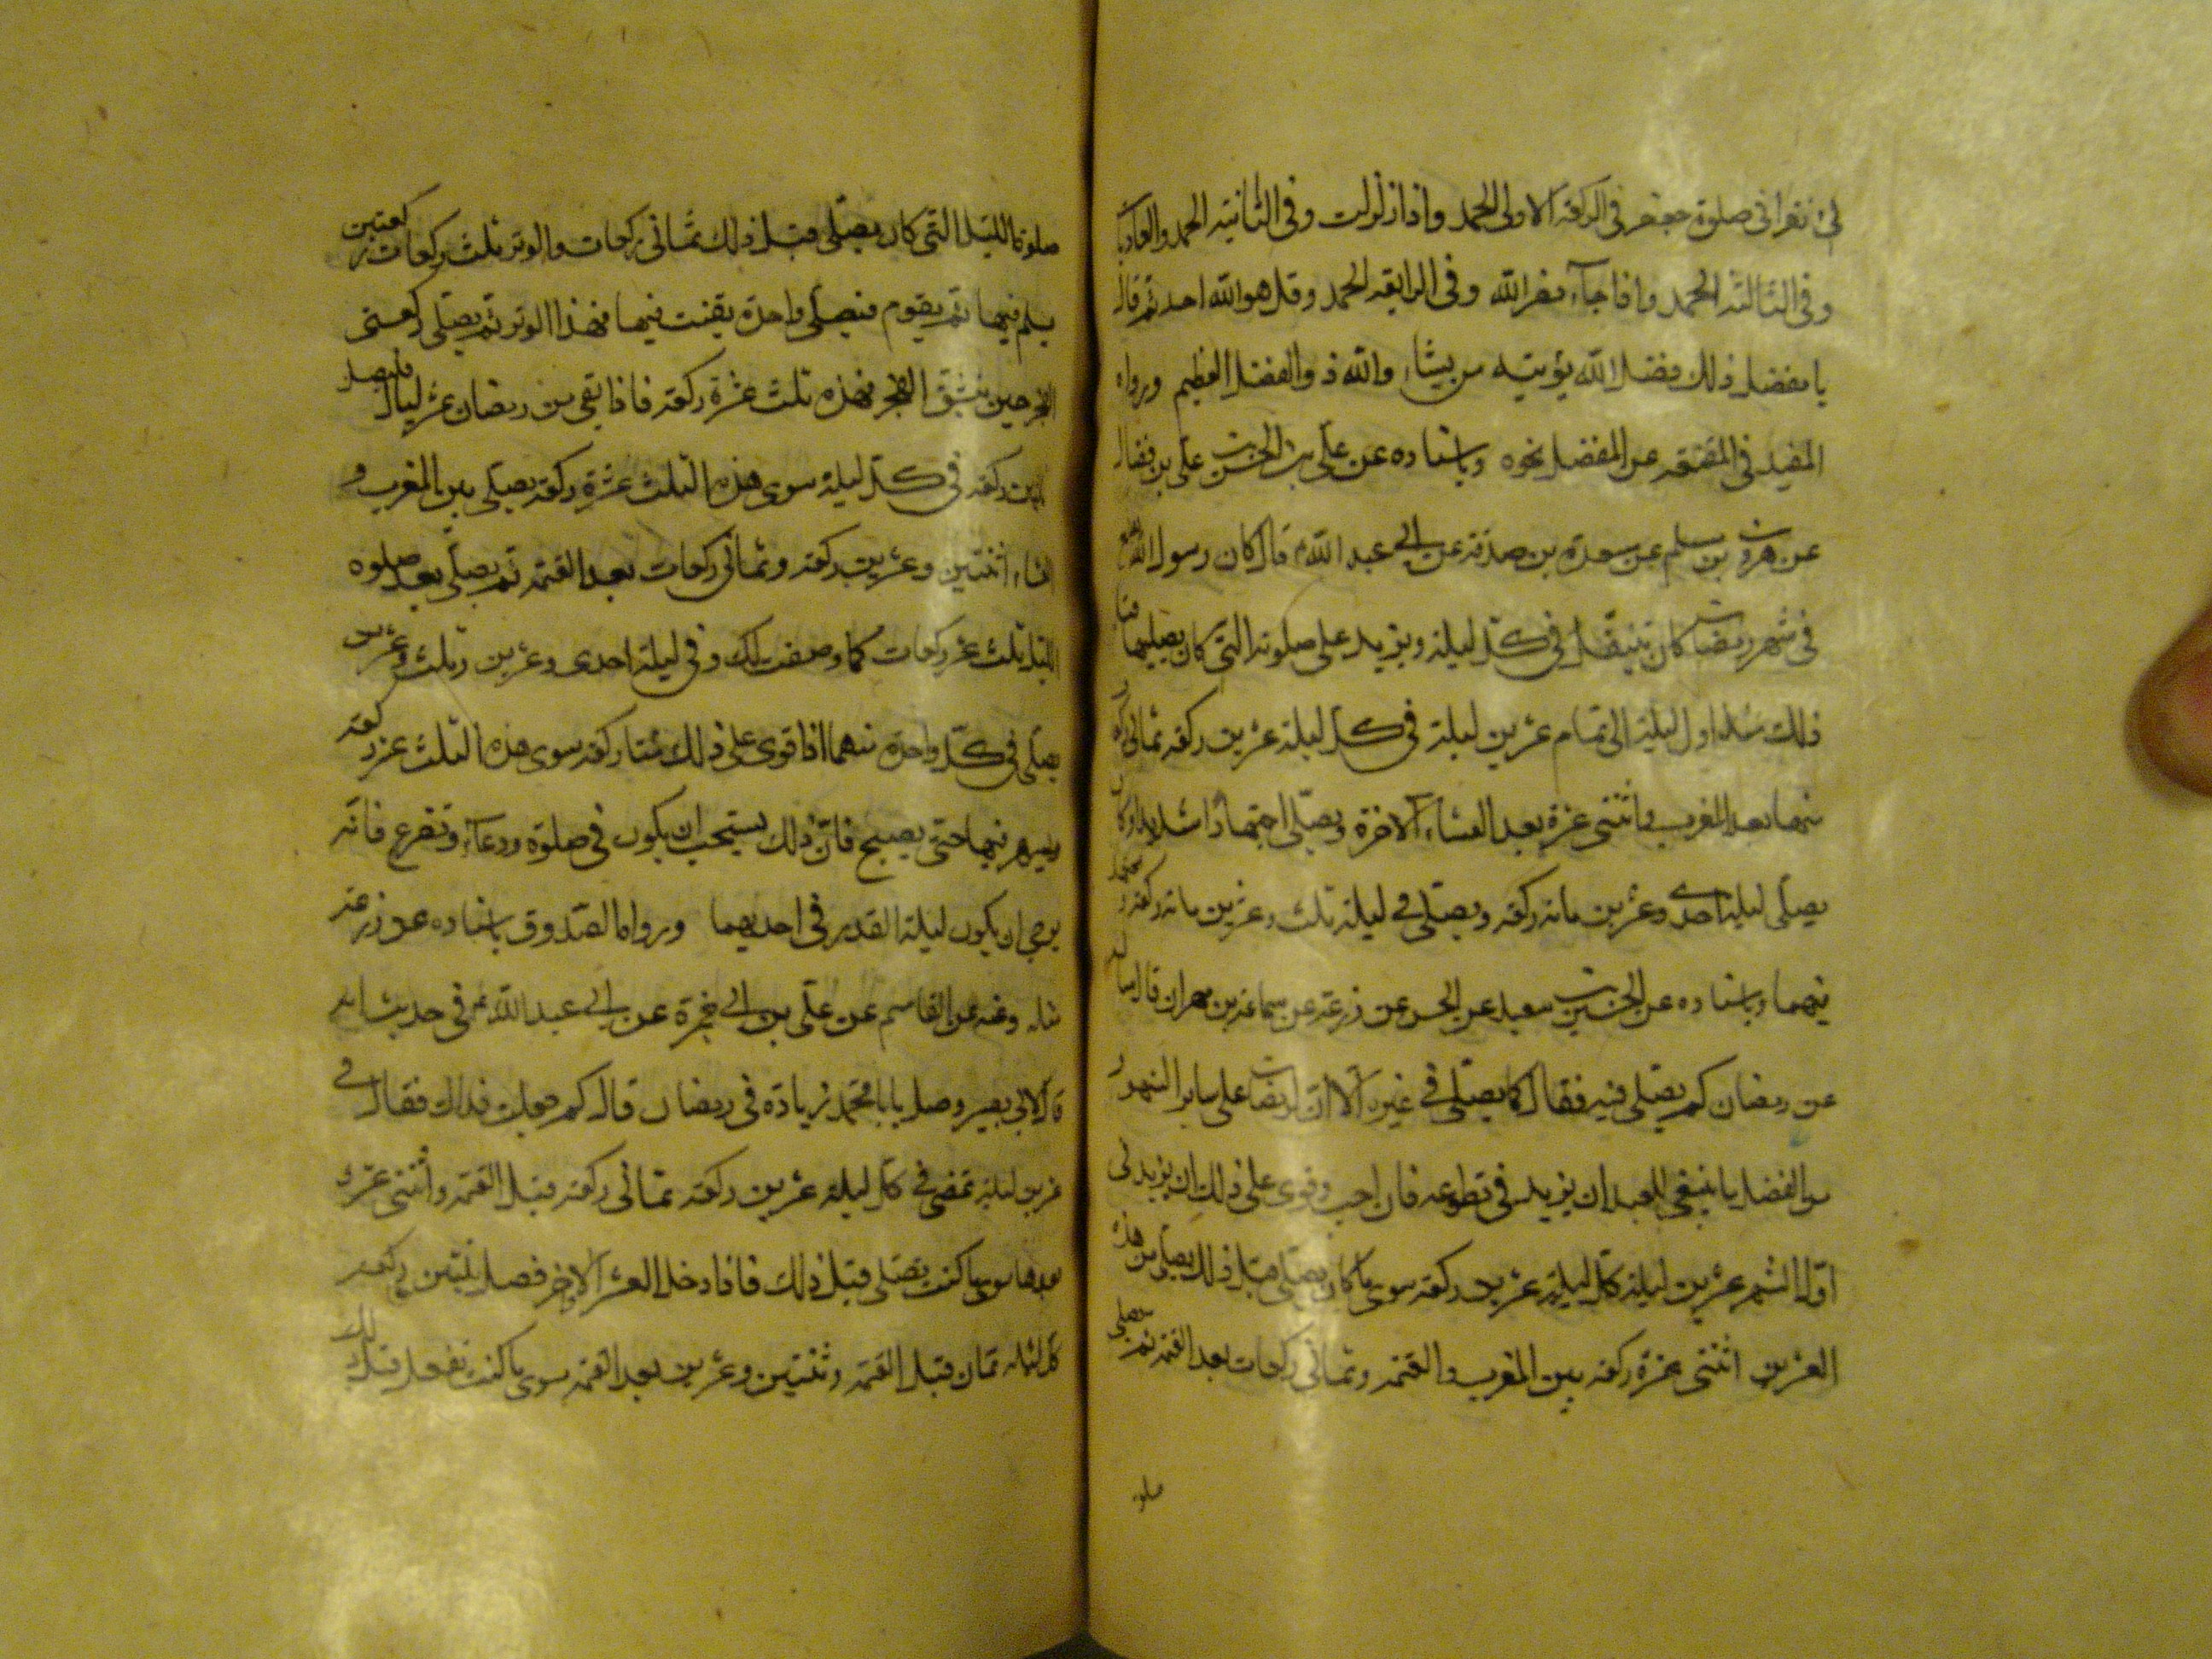 لي تقرا في صلوة جعفر في الركعة الاولى الحمد واذا زلزلت وفي الثانية الحمد والعاديا
وفي الثالثة الحمد واذا جاء نصر الله وفي الرابعة الحمد وقل هو الله احد ثم قال
يا مفضل ذلك فضل الله يؤتيه من يشاء والله ذو الفضل العظيم ورواه
المفيد في المقنعة عن المفضل نحوه وباسناده عن علي بن الحسن بن علي بن فضال
عن هرون بن مسلم عن مسعدة بن صدقة عن ابي عبد الله ع قال كان رسول الله
في شهر رمضان كان يتنفل في كل ليلة ويزيد على صلوته التي كان يصليها قبل
ذلك منذ اول ليلة الى تمام عشرين ليلة في كل ليلة عشرين ركعة ثماني ركعا
منها بعد المغرب واثنتى عشرة بعد العشاء الاخرة ويصلي اجتهادا شديدا وكان
يصلي ليلة احدى وعشرين مائة ركعة ويصلي في ليلة ثلث وعشرين مائة ركعة و
فيهما وباسناده عن الحسين بن سعيد عن الحسن عن زرعة عن سماعة بن مهران قال سالته
عن رمضان كم يصلى فيه فقال كما يصلى في غيره الا ان لرمضان على ساير الشهور
من الفضل ما ينبغي للعبد ان يزيد في تطوعه فان احب وقوى على ذلك ان يزيد في
اول الشهر عشرين ليلة كل ليلة عشرين ركعة سوى ما كان يصلي قبل ذلك يصلي من هذه
العشرين اثنتى عشرة ركعة بين المغرب والعتمة وثماني ركعات بعد العتمة ثم يصلي
صلوة
صلوة الليل التي كان يصلي قبل ذلك ثماني ركعات والوتر ثلث ركعات ركعتين
يسلم فيهما ثم يقوم فيصلي واحدة يقنت فيها فهذا الوتر ثم يصلي ركعتى
الفجر حين ينشق الفجر فهذه ثلث عشرة ركعة فاذا بقى من رمضان عشر ليال فليصل
ثلثين ركعة في كل ليلة سوى هذه الثلث عشرة ركعة يصلي بين المغرب و
العشاء اثنتين وعشرين ركعة وثماني ركعات بعد العتمة ثم يصلي بعد صلوة
الليل ثلث عشر ركعات كما وصفت لك وفي ليلة احدى وعشرين وثلث وعشرين
يصلي في كل واحدة منهما اذا قوى على ذلك مائة ركعة سوى هذه الثلث عشر ركعة
وليسهر فيهما حتى يصبح فان ذلك يستحب ان يكون في صلوة ودعاء وتضرع فانه
يرجى ان يكون ليلة القدر في احديهما ورواه الصدوق باسناده عن زرعة
مثله وعنه عن القاسم عن علي بن ابي حمزة عن ابي عبد الله ع في حديث انه
قال لابي بصير وصل يا با محمد زيادة في رمضان قال كم جعلت فداك فقال في
عشرين ليلة تمضي في كل ليلة عشرين ركعة ثماني ركعة قبل العتمة واثنتى عشرة
بعدها سوى ما كنت تصلي قبل ذلك فاذا دخل العشر الاخر فصل ثلثين ركعة
كل ليلة ثمان قبل العتمة وثنتين وعشرين بعد العتمة سوى ما كنت تفعل قبل ذلك